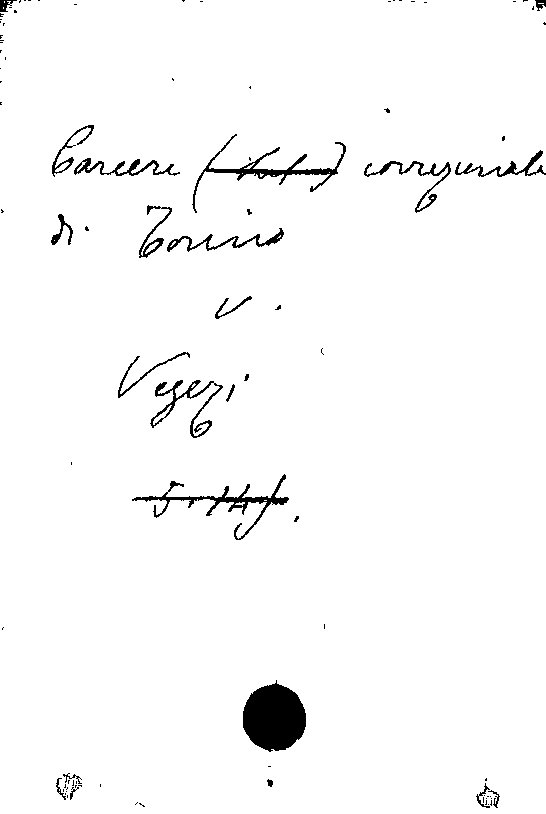 Carcere ( ) correzionale
di Torino
v.
Vegezi
5.14).